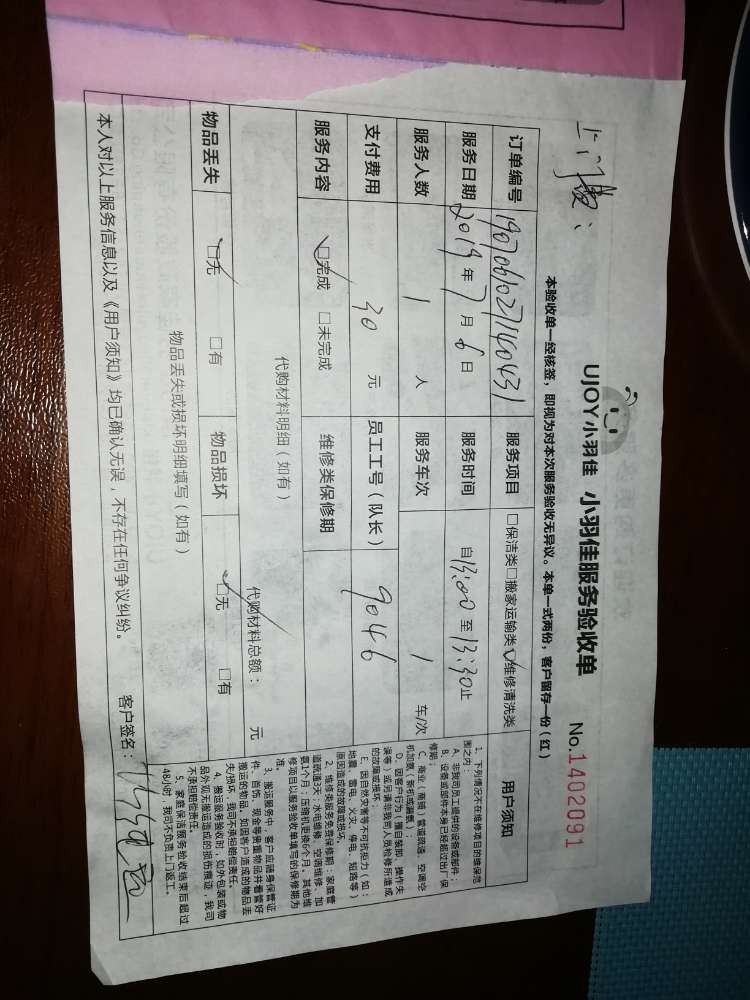 UJOY小羽佳 小羽佳服务验收单
No.1402091
本验收单一经核签，即视为对本次服务验收无异议。本单一式两份，客户留存一份（红）
上门费：
订单编号 服务项目 □保洁类□搬家运输类□维修清洗类
服务日期 2019年7月6日 服务时间 自13:00至13:30止
服务人数 1 人 服务车次 1 车/次
支付费用 30 元 员工工号（队长） 9046
服务内容 □完成 □未完成 维修类保修期
代购材料明细（如有） 代购材料总额： 元
物品丢失 □无 □有 物品损坏 □无 □有
物品丢失或损坏明细填写（如有）
本人对以上服务信息以及《用户须知》均已确认无误，不存在任何争议纠纷。 客户签名：
用户须知
1、下列情况不在维修项目的维保范
围之内：
A、非我司员工提供的设备或部件；
B、设备或部件本身已经超过出厂保
修期；
C、商业（商铺）管道疏通、空调空
机加氨（新机或漏氨）；
D、因用户行为（擅自装卸、操作失
误等）或另请非我司人员检修所造成
的故障或损坏；
E、因自然灾害等不可抗拒力（如：
地震、雷电、火灾、停电、短路等）
原因造成的故障或损坏。
2、维修类服务免费保修期：家庭管
道疏通3天；水电维修、空调维修、加
氨1个月，压缩机更换6个月。其他维
修项目以服务验收单填写的保修期为
准。
3、搬运服务中，客户应随身保管证
件、首饰、现金等贵重物品并看管好
搬运的物品。如因客户造成的物品丢
失/损坏，我司不承担赔偿责任。
4、搬运服务验收时，如外包装或物
品外观无搬运造成的损伤痕迹，我司
不承担赔偿责任。
5、家庭保洁服务验收结束后超过
48小时，我司不负责上门返工。